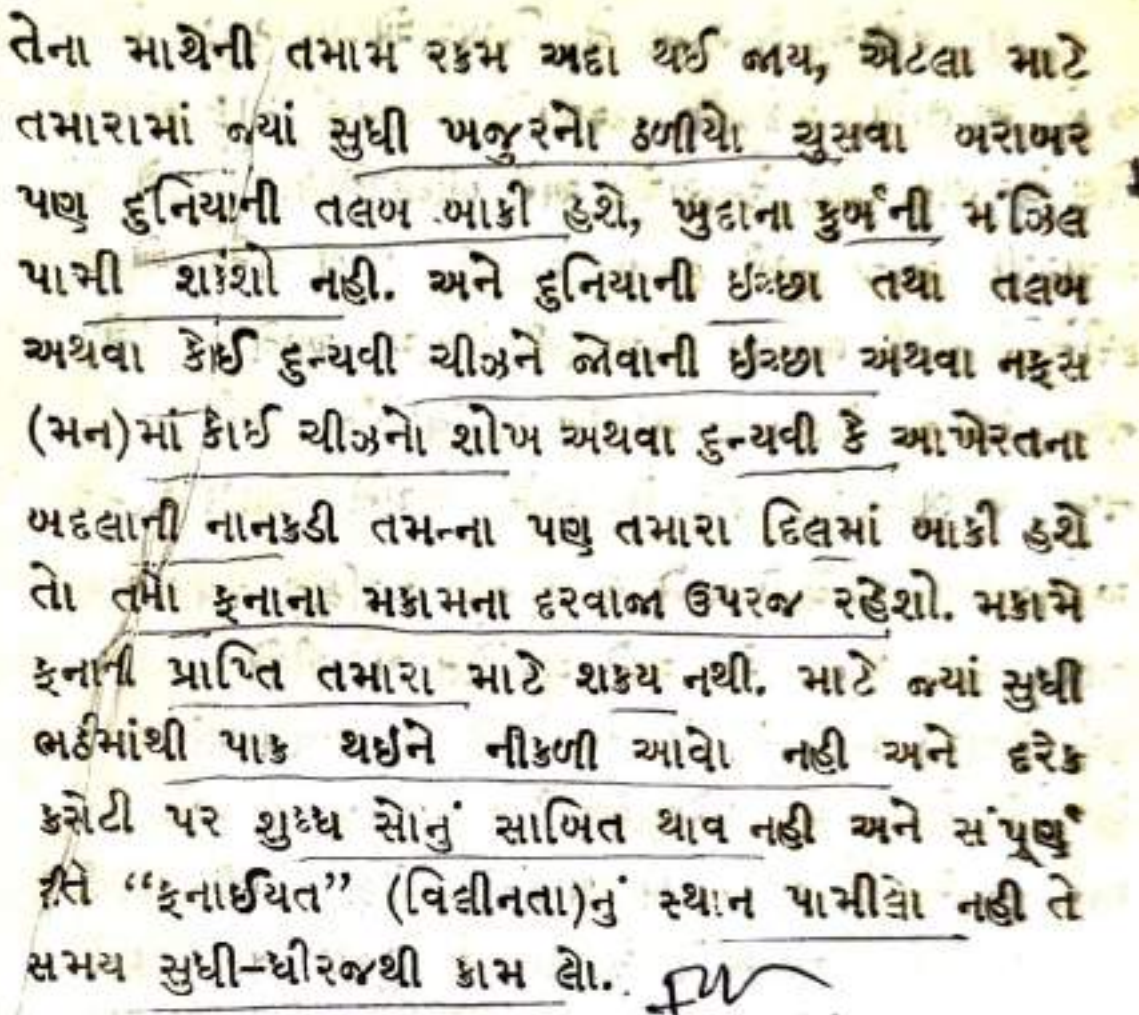 તેના માથેની તમામ રકમ અદા થઈ જાય, એટલા માટે
તમારામાં જ્યાં સુધી ખજુરનો ઠળીયો ચુસવા બરાબર
પણ દુનિયાની તલબ બાકી હશે, ખુદાના કુર્બની મંઝિલ
પામી શકશો નહી. અને દુનિયાની ઇચ્છા તથા તલબ
અથવા કોઈ દુન્યવી ચીઝને જોવાની ઇચ્છા અથવા નફ્સ
(મન)માં કોઈ ચીઝનો શોખ અથવા દુન્યવી કે આખેરતના
બદલાની નાનકડી તમન્ના પણ તમારા દિલમાં બાકી હશે
તો તમો ફનાના મકામના દરવાજા ઉપરજ રહેશો. મકામે
ફનાની પ્રાપ્તિ તમારા માટે શકય નથી. માટે જ્યાં સુધી
ભઠ્ઠીમાંથી પાક થઇને નીકળી આવો નહી અને દરેક
કસેટી પર શુધ્ધ સોનું સાબિત થાવ નહી અને સંપૂર્ણ
રીતે “ફનાઈયત” (વિલીનતા)નું સ્થાન પામીલો નહી તે
સમય સુધી-ધીરજથી કામ લો.